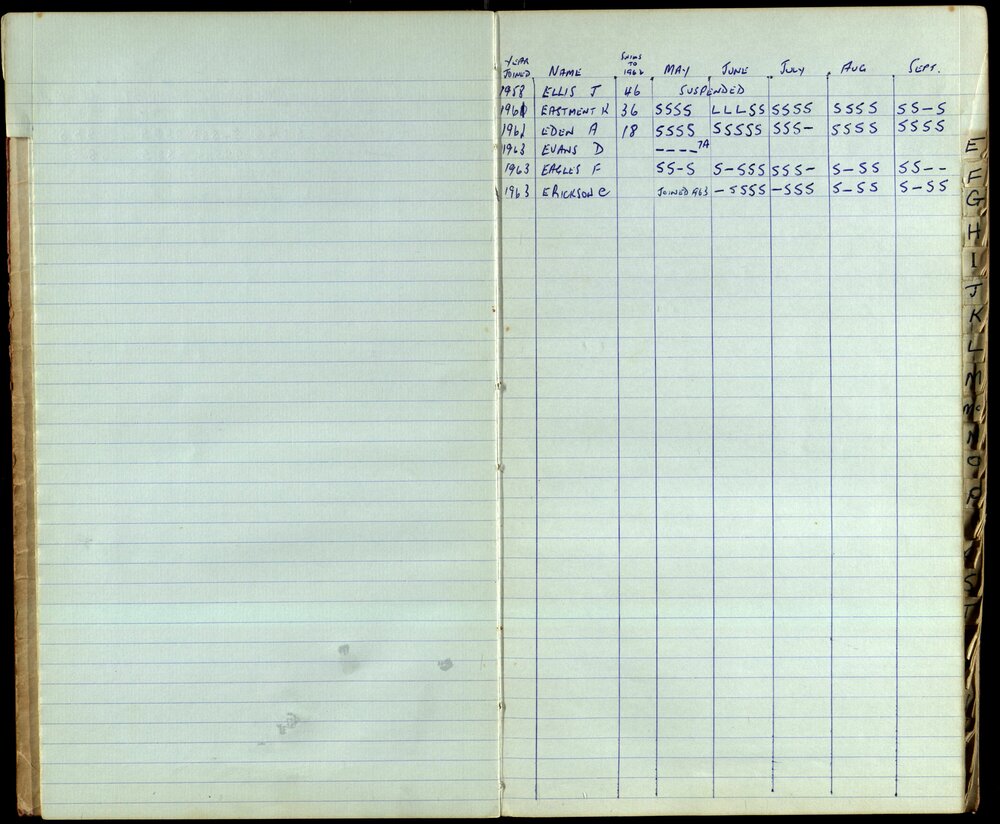 YEAR JOINED NAME SWIMS TO 1962 MAY JUNE JULY AUG SEPT.
1958 ELLIS J 46 SUSPENDED
1961 EASTMENT K 36 SSSS LLLSS SSSS SSSS SS-S
1961 EDEN A 18 SSSS SSSSS SSS- SSSS SSSS
1963 EVANS D ----7A
1963 EAGLES F SS-S S-SSS SSS- S-SS SS--
1963 ERICKSON C JOINED 9/6/3 -SSSS -SSS S-SS S-SS
E
F
G
H
I
J
K
L
M
Mc
N
O
P
S
T